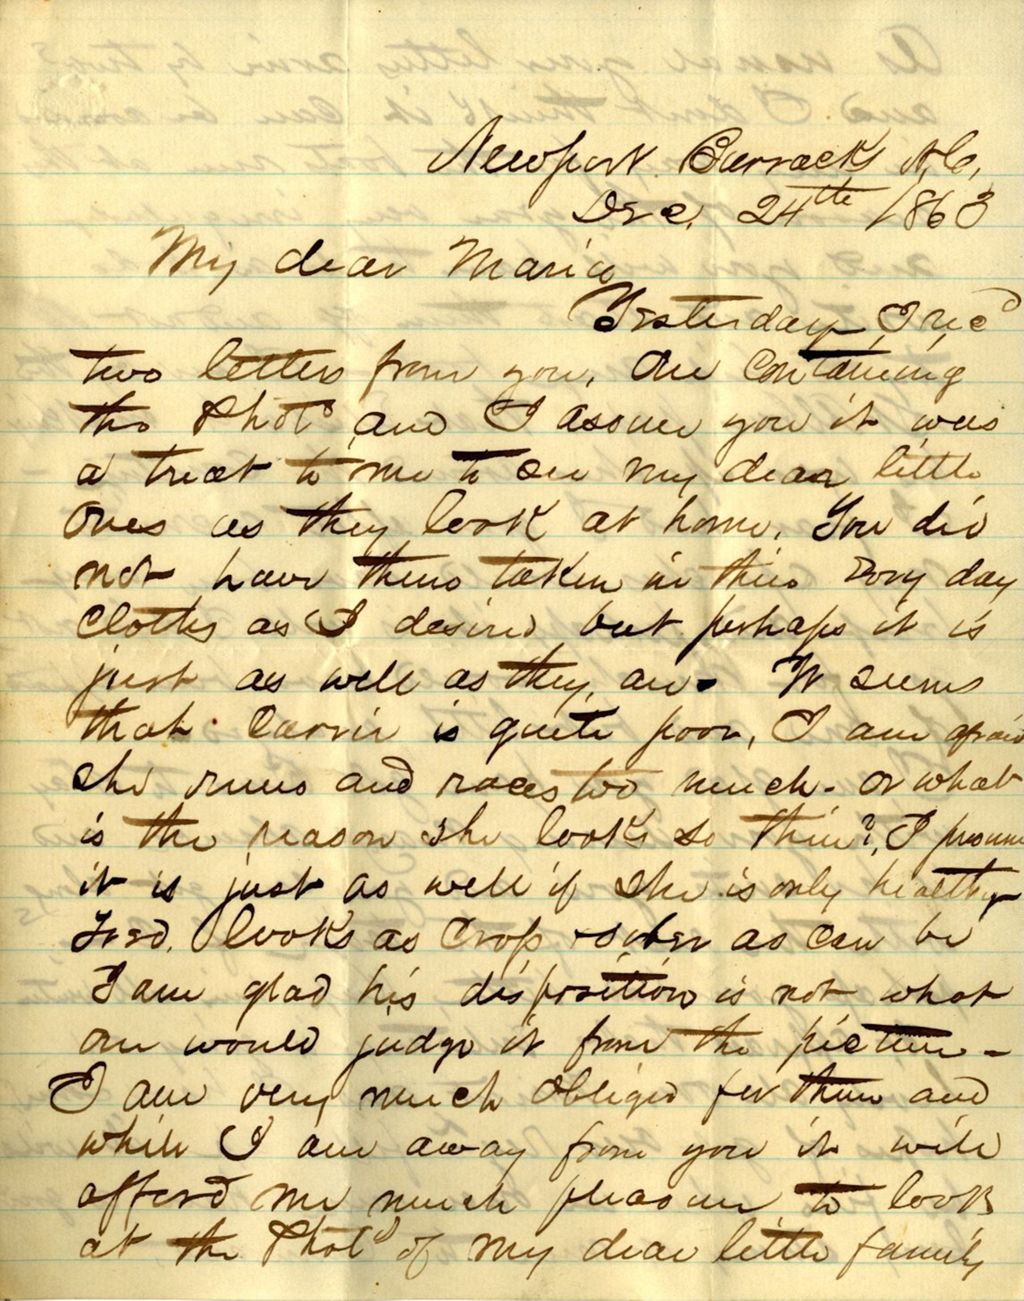 Newport Barracks N.C.
Dec. 24th 1863
My dear Maria
Yesterday I recd
two letters from you, One containing
the Photo and I assure you it was
a treat to me to see my dear little
ones as they look at home. You did
not have them taken in their Every day
cloths as I desired but perhaps it is
just as well as they are. It seems
that Carrie is quite poor, I am afraid
she runs and races too much. or what
is the reason she looks so thin?, I presume
it is just as well if she is only healthy
Fred. looks as Cross & sober as can be
I am glad his disposition is not what
one would judge it from the picture -
I am very much obliged for them and
while I am away from you it will
afford me much pleasure to look
at the Photo of my dear little family